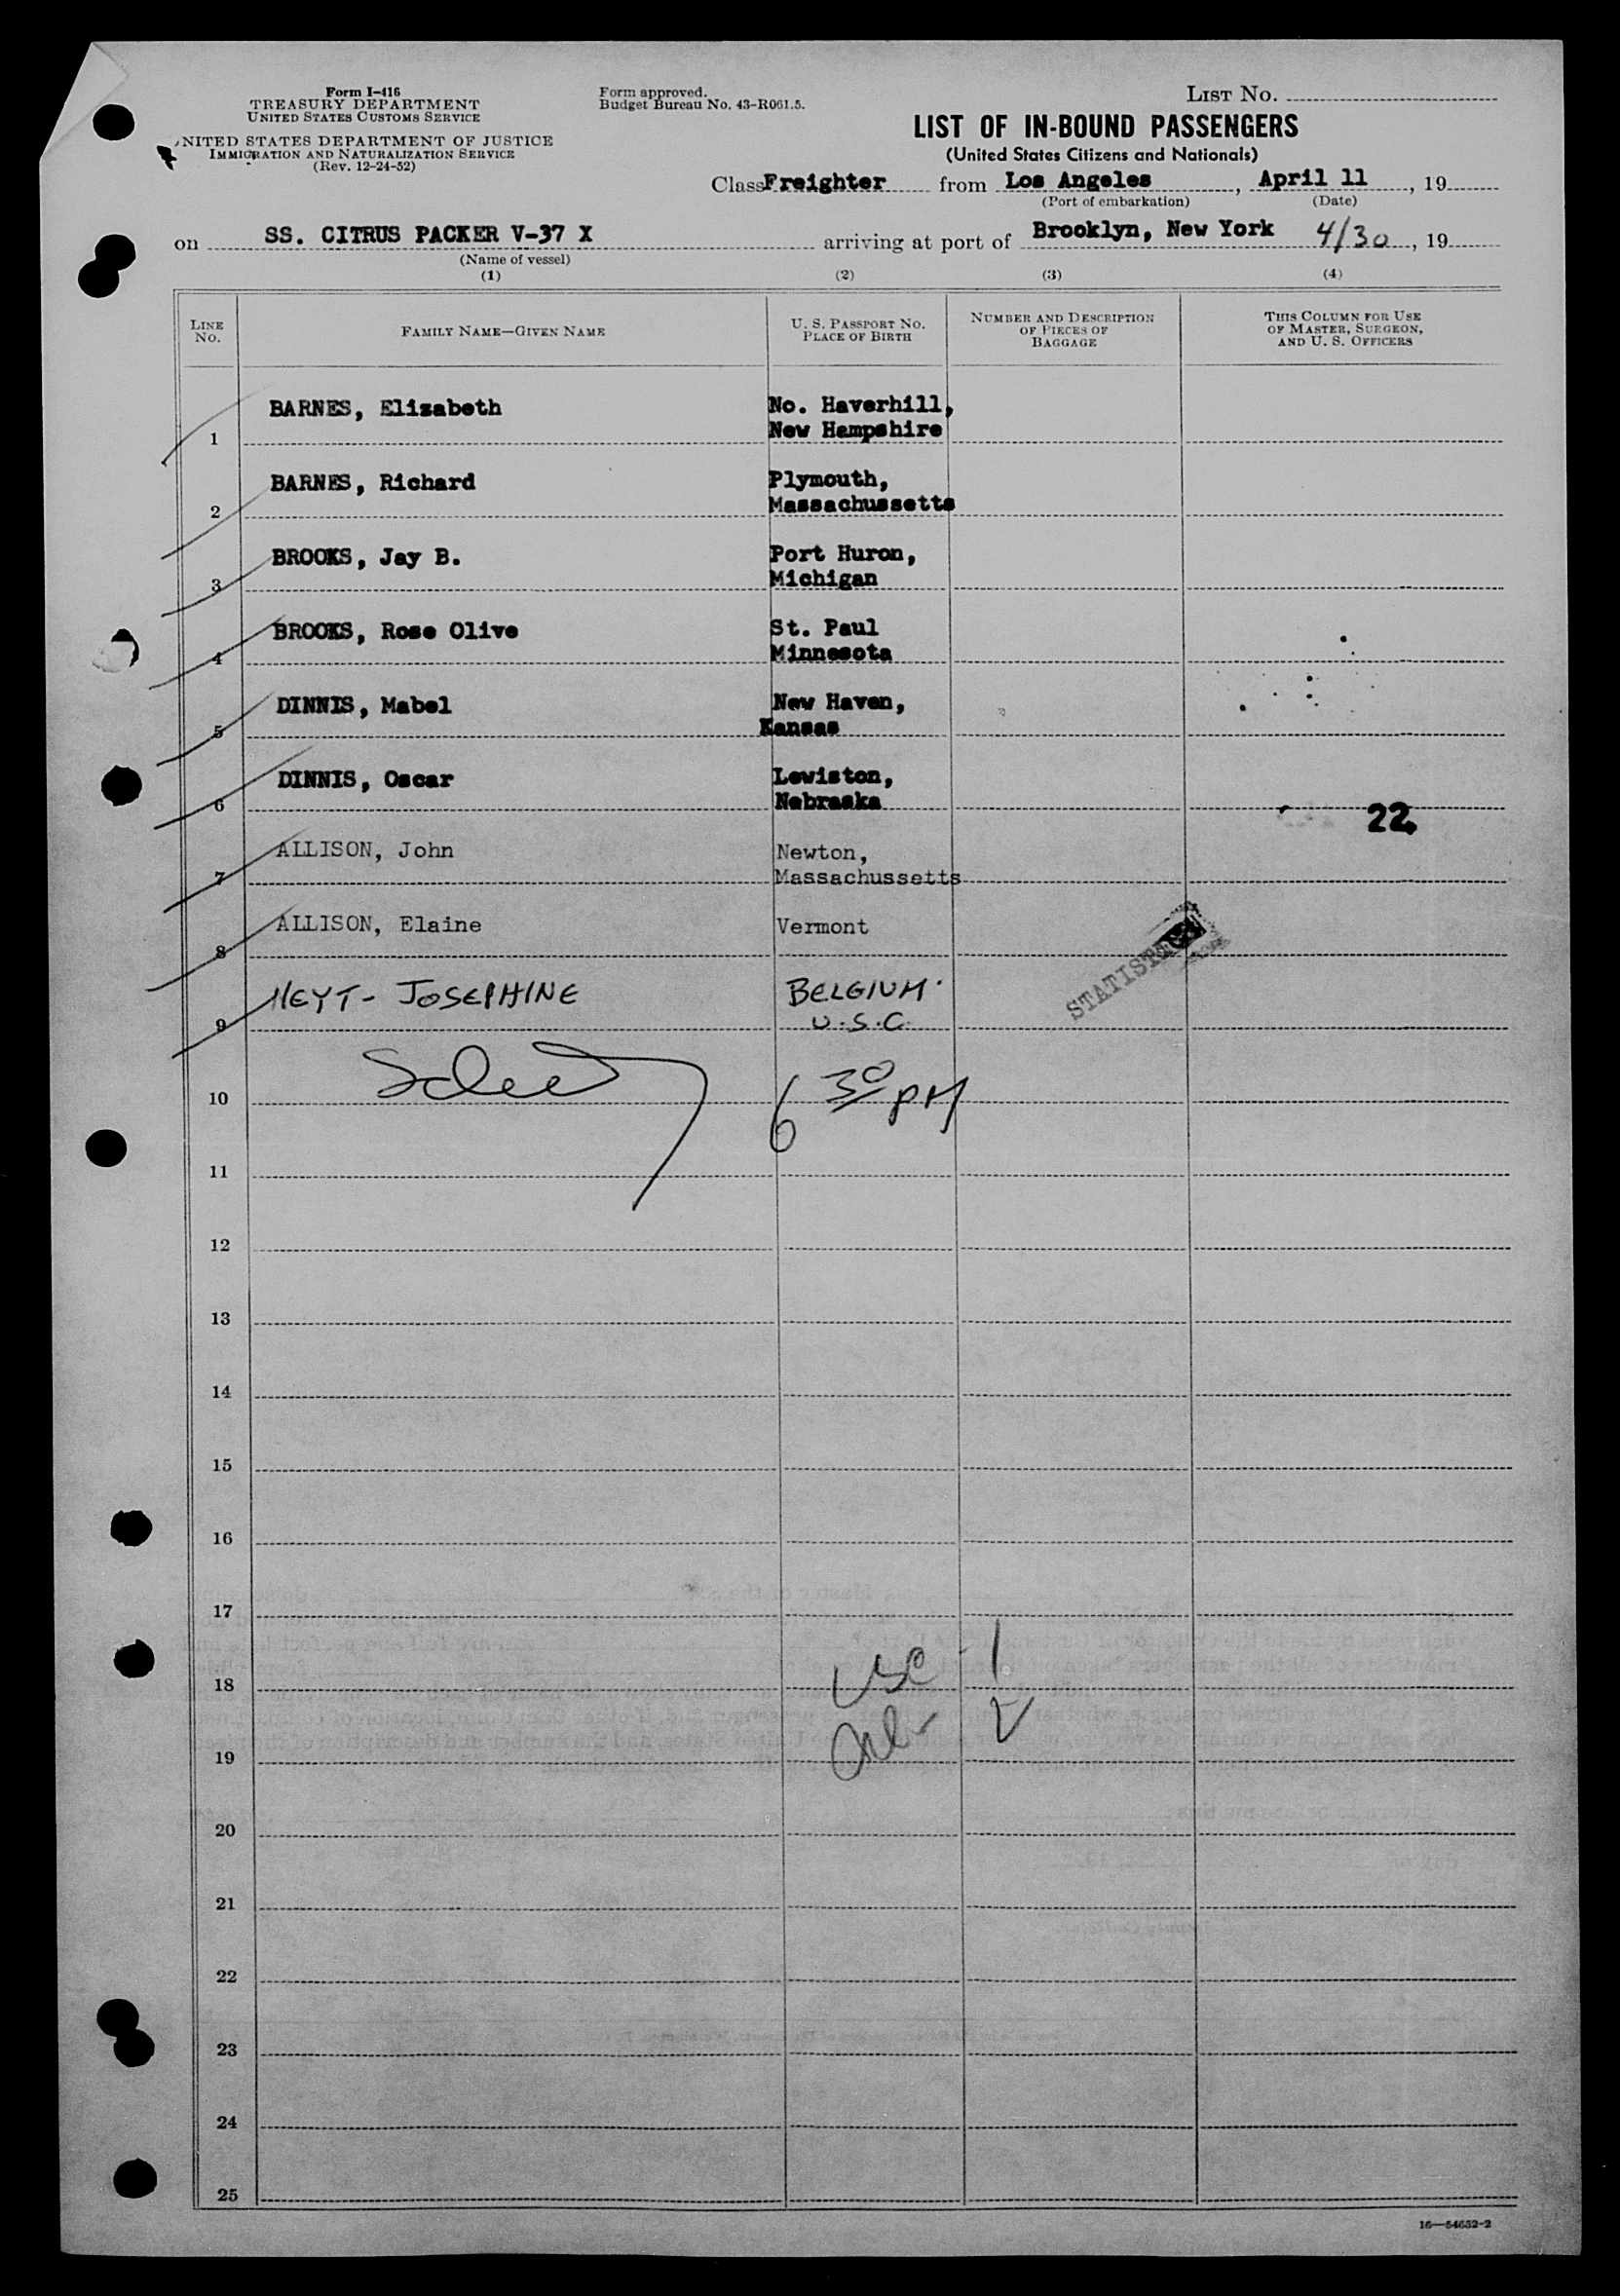 Form I-416
TREASURY DEPARTMENT
UNITED STATES CUSTOMS SERVICE
NITED STATES DEPARTMENT OF JUSTICE
IMMIGRATION AND NATURALIZATION SERVICE
(Rev. 12-24-52)
Form approved.
Budget Bureau No. 43-R061.5.
LIST NO.
LIST OF IN-BOUND PASSENGERS
(United States Citizens and Nationals)
Class Freighter from Los Angeles, April 11, 19
(Port of embarkation) (Date)
on SS. CITRUS PACKER V-37 X arriving at port of Brooklyn, New York 4/30, 19
(Name of vessel)
(1) (2) (3) (4)
LINE NO.
FAMILY NAME—GIVEN NAME
U. S. PASSPORT NO.
PLACE OF BIRTH
NUMBER AND DESCRIPTION
OF PIECES OF
BAGGAGE
THIS COLUMN FOR USE
OF MASTER, SURGEON,
AND U. S. OFFICERS
1 BARNES, Elizabeth No. Haverhill,
New Hampshire
2 BARNES, Richard Plymouth,
Massachussetts
3 BROOKS, Jay B. Port Huron,
Michigan
4 BROOKS, Rose Olive St. Paul
Minnesota
5 DINNIS, Mabel New Haven,
Kansas
6 DINNIS, Oscar Lewiston,
Nebraska
22
7 ALLISON, John Newton,
Massachussetts
8 ALLISON, Elaine Vermont
9 HEYT - JOSEPHINE BELGIUM
U.S.C.
10 6 30 PM
11
12
13
14
15
16
17
18 USC - 1
19 2
20
21
22
23
24
25
16—54652-2